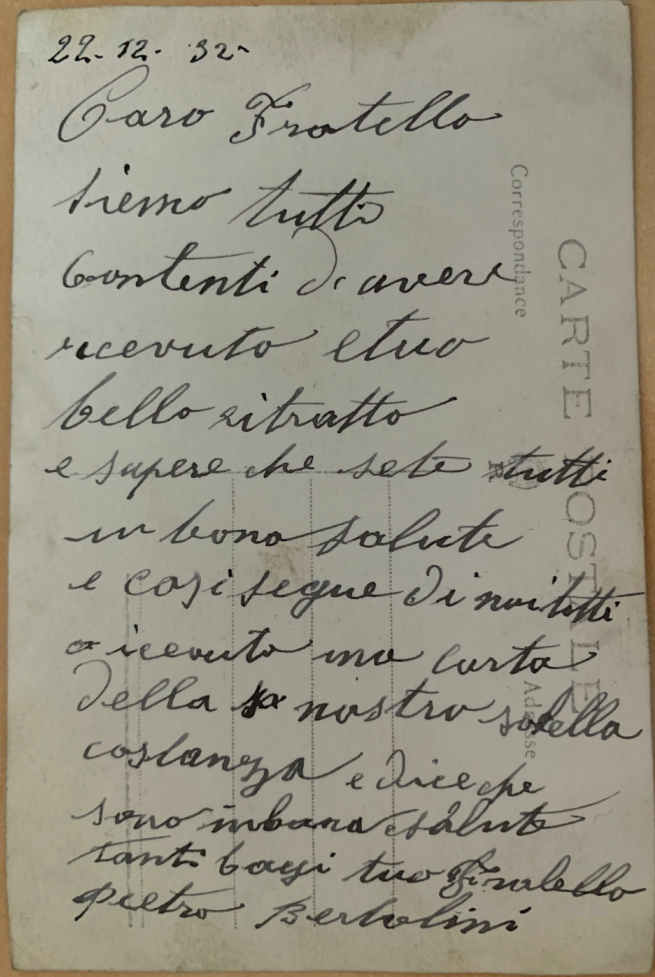 22-12-32-
Caro Fratello
siemo tutti
Contenti di avere
ricevuto etuo
bello ritratto
e sapere che sete tutti
in bona salute
e cosi segue di noi tutti
o icevuto una carta
della nostro sorella
costanza e dice che
sono in bona salute
tanti baqi tuo Fratello
Pietro Bertolini
CARTE POSTALE
Correspondance
Adresse